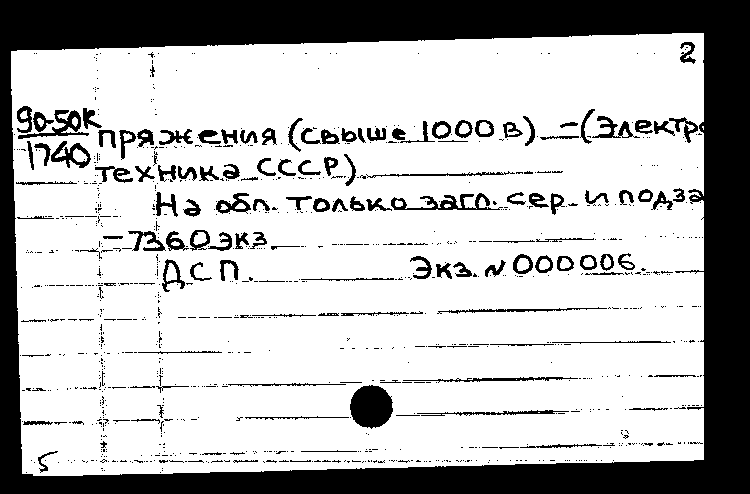 2
90-50к
1740
пряжения (свыше 1000 в) - (Электро
техника СССР)
На обл. только загл. сер. и подза
- 7360 экз.
ДСП. Экз. № 000006.
5